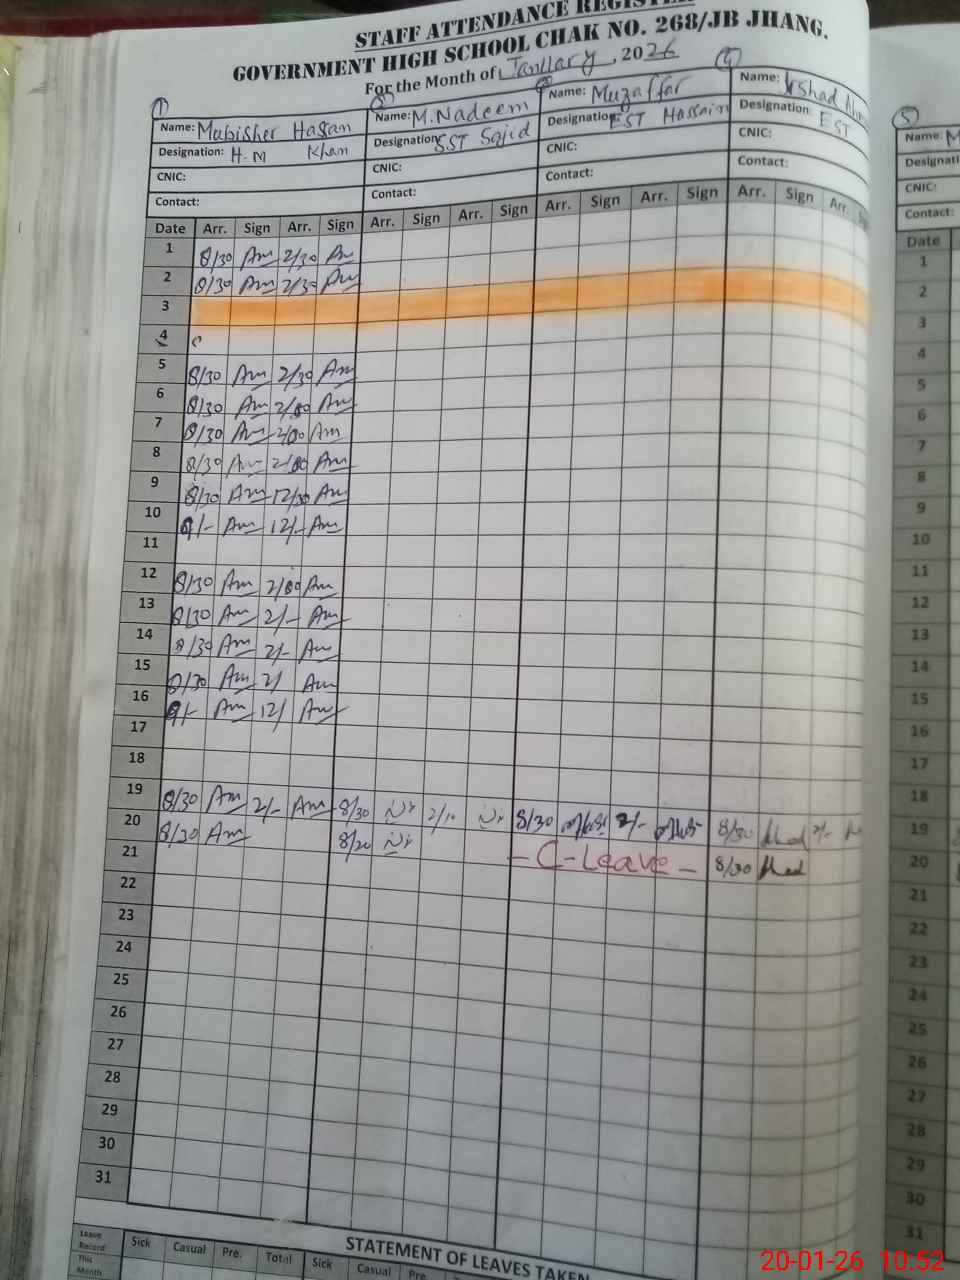 STAFF ATTENDANCE REGISTER
GOVERNMENT HIGH SCHOOL CHAK NO. 268/JB JHANG.
For the Month of January, 2026
1 2 4
Name: Mubisher Hassan Name: M. Nadeem Name: Muzaffar Name: Irshad
Designation: H.M Khan Designation: SST Sajid Designation: EST Hassain Designation: EST
CNIC: CNIC: CNIC: CNIC:
Contact: Contact: Contact: Contact:
Date Arr. Sign Arr. Sign Arr. Sign Arr. Sign Arr. Sign Arr. Sign Arr. Sign Arr.
1 8/30 Am 2/30 Am
2 8/30 Am 2/30 Am
3
4
5 8/30 Am 2/30 Am
6 8/30 Am 2/00 Am
7 8/30 Am 2/00 Am
8 8/30 Am 2/00 Am
9 8/30 Am 12/30 Am
10 9/- Am 12/- Am
11
12 8/30 Am 2/00 Am
13 8/30 Am 2/- Am
14 8/30 Am 2/- Am
15 8/30 Am 2/ Am
16 9/- Am 12/ Am
17
18
19 8/30 Am 2/- Am 8/30 2/10 8/30 2/- 8/30 2/-
20 8/30 Am 8/30 - C-Leave - 8/30
21
22
23
24
25
26
27
28
29
30
31
STATEMENT OF LEAVES TAKEN
Leave Record Sick Casual Pre. Total Sick Casual Pre.
This Month
5
Name: M
Designati
CNIC:
Contact:
Date
1
2
3
4
5
6
7
8
9
10
11
12
13
14
15
16
17
18
19
20
21
22
23
24
25
26
27
28
29
30
31
20-01-26 10:52